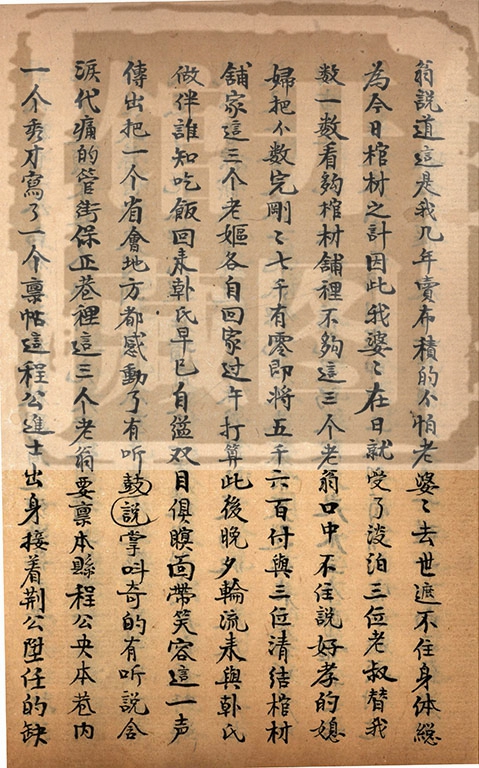 翁説道這是我几年賣布積的不怕老婆〻去世遮不住身体緫
為今日棺材之計因此我婆〻在日就受了淡泊三位老叔替我
数一数看夠棺材舖裡不夠這三个老翁口中不住說好孝的媳
婦把不数完剛〻七千有零即將五千六百付與三位清結棺材
舖家這三个老嫗各自回家过午打算此後晚夕輪流来與韓氏
做伴誰知吃飯回来韓氏早已自縊双目俱瞑面帶笑容這一声
傳出把一个省會地方都感動了有听鼓說掌呌奇的有听説含
淚代痛的管街保正巷裡這三个老翁要禀本縣程公央本巷内
一个秀才寫了一个禀帖這程公進士出身接着荆公陞任的缺